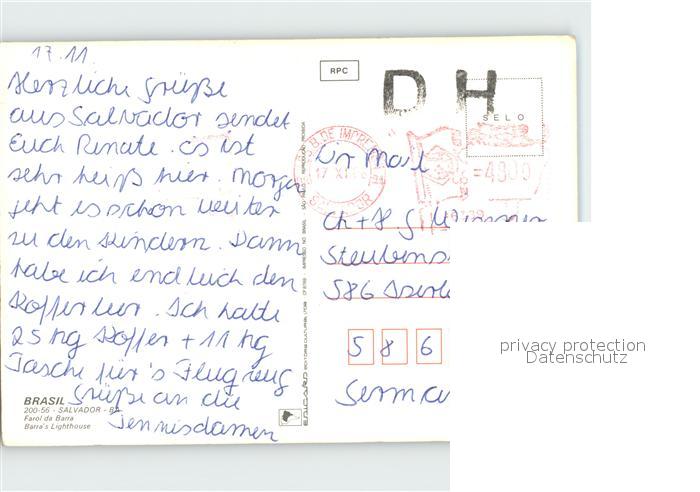 17.11.
Herzliche Grüße
aus Salvador sendet
Euch Renate. Es ist
sehr heiß hier. Morgen
geht es schon weiter
zu den Kindern. Dann
habe ich endlich den
Koffer leer. Ich hatte
25 kg Koffer + 11 kg
Tasche für's Flugzeug
Grüße an die
Tennisdamen
BRASIL
200-56 - SALVADOR - BA
Farol da Barra
Barra's Lighthouse
RPC
DH
SELO
Air Mail
17 XI
SALVADOR
=4900
Ch + H G
Steubens
586 Iserl
5 8 6
Germa
privacy protection
Datenschutz